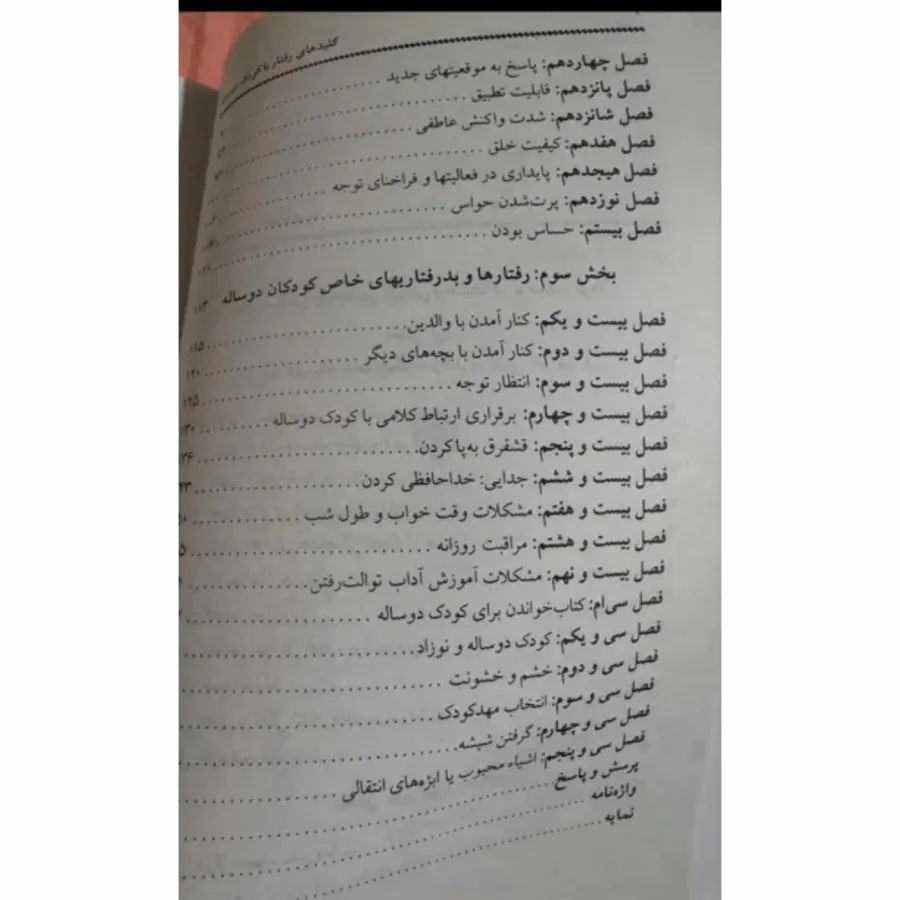 کلیدهای رفتار با کودک
فصل چهاردهم: پاسخ به موقعیتهای جدید
فصل پانزدهم: قابلیت تطبیق
فصل شانزدهم: شدت واکنش عاطفی
فصل هفدهم: کیفیت خلق
فصل هیجدهم: پایداری در فعالیتها و فراخنای توجه
فصل نوزدهم: پرت‌شدن حواس
فصل بیستم: حساس بودن
بخش سوم: رفتارها و بدرفتاریهای خاص کودکان دوساله ۱۱۳
فصل بیست و یکم: کنار آمدن با والدین ۱۱۵
فصل بیست و دوم: کنار آمدن با بچه‌های دیگر ۱۲۰
فصل بیست و سوم: انتظار توجه ۱۲۵
فصل بیست و چهارم: برقراری ارتباط کلامی با کودک دوساله ۱۳۰
فصل بیست و پنجم: قشقرق به‌پا کردن
فصل بیست و ششم: جدایی: خداحافظی کردن
فصل بیست و هفتم: مشکلات وقت خواب و طول شب
فصل بیست و هشتم: مراقبت روزانه
فصل بیست و نهم: مشکلات آموزش آداب توالت‌رفتن
فصل سی‌ام: کتاب‌خواندن برای کودک دوساله
فصل سی و یکم: کودک دوساله و نوزاد
فصل سی و دوم: خشم و خشونت
فصل سی و سوم: انتخاب مهدکودک
فصل سی و چهارم: گرفتن شیشه
فصل سی و پنجم: اشیاء محبوب یا ابژه‌های انتقالی
پرسش و پاسخ
واژه‌نامه
نمایه